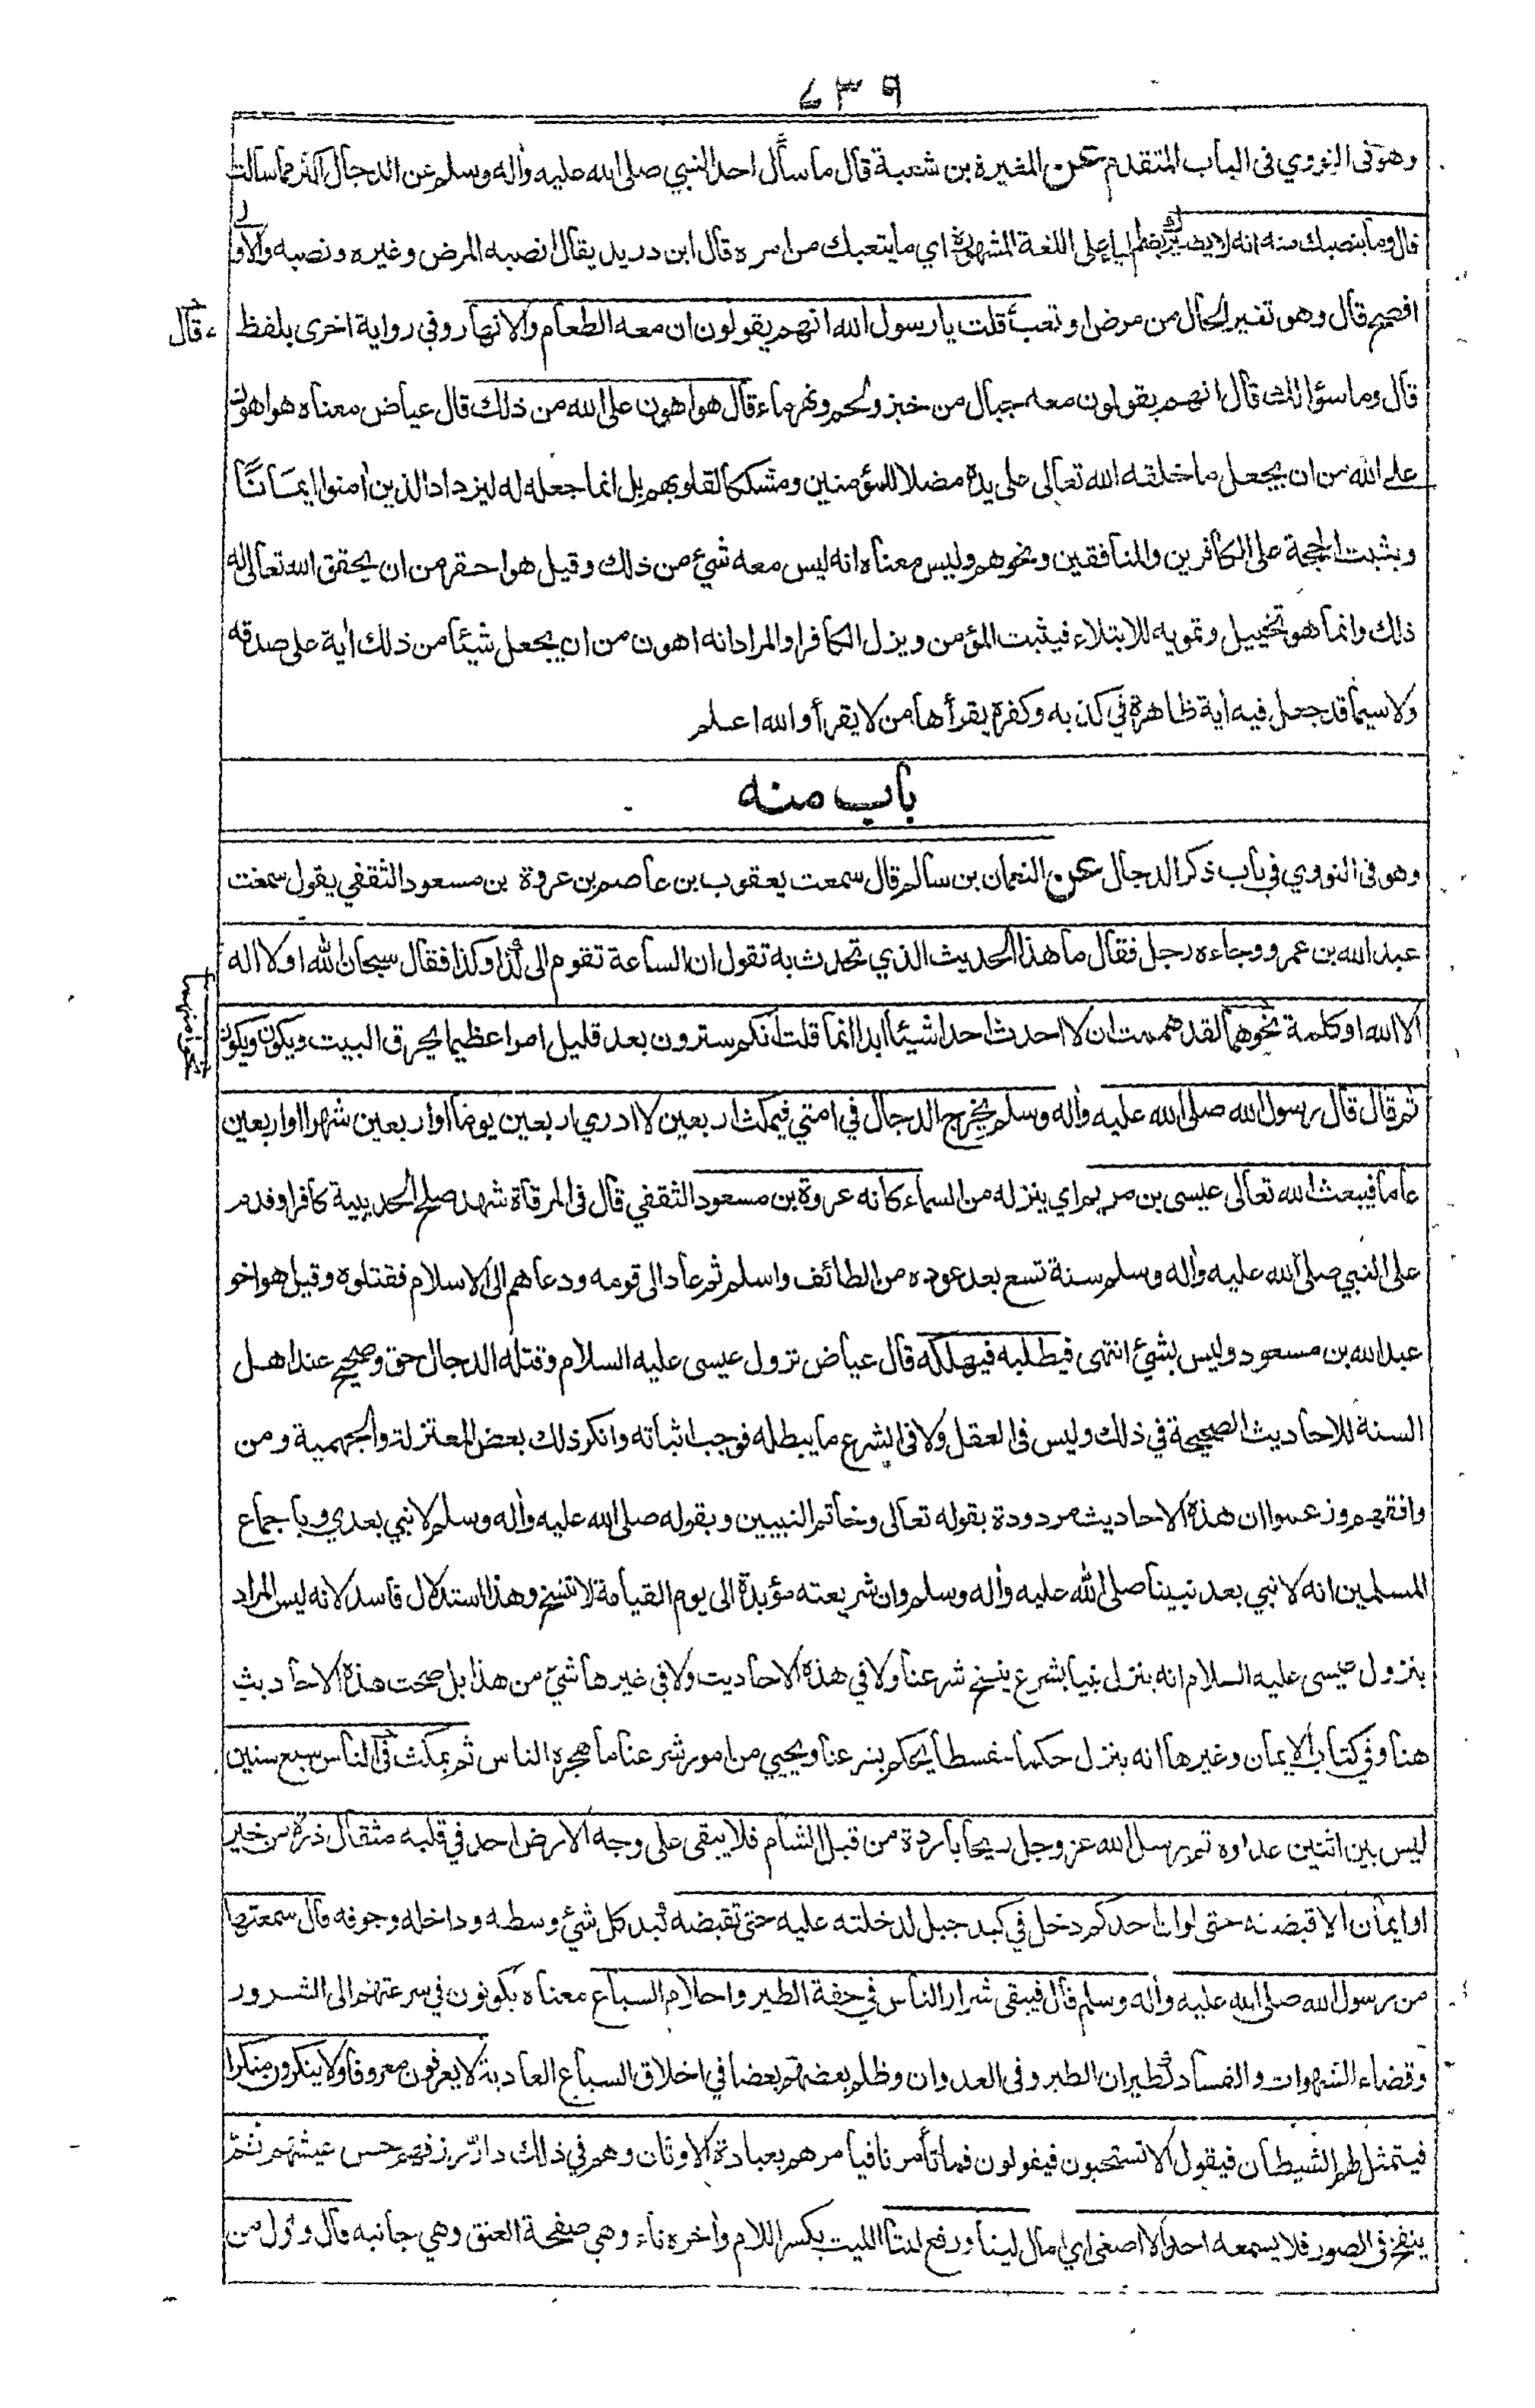 ٧٣٩
وهو في النووي في الباب المتقدم عن المغيرة بن شعبة قال ما سأل احد النبي صلى الله عليه واٰله وسلم عن الدجال اكثر مما سألت
قال وما ينصبك منه انه لا يضرك بضم الياء على اللغة المشهورة اي ما يتعبك من امره قال ابن دريد يقال انصبه المرض وغيره ونصبه والاول
افصح قال وهو تغير الحال من مرض او تعب قلت يا رسول الله انهم يقولون ان معه الطعام والانهار وفي رواية اخرى بلفظ
قال
قال وما سؤالك قال انهم يقولون معه جبال من خبز ولحم ونهر ماء قال هو اهون على الله من ذلك قال عياض معناه هو اهون
على الله من ان يجعل ما خلقه الله تعالى على يده مضلا للمؤمنين ومشككا لقلوبهم بل انما جعله له ليزداد الذين اٰمنوا ايمانا
ويثبت الحجة على الكافرين والمنافقين ونحوهم وليس معناه انه ليس معه شئ من ذلك وقيل هو احقر من ان يحقق الله تعالى له
ذلك وانما هو تخييل وتمويه للابتلاء فيثبت المؤمن ويزل الكافر او المراد انه اهون من ان يجعل شيئا من ذلك اٰية على صدقه
ولا سيما قد جعل فيه اٰية ظاهرة في كذبه وكفره يقرأها من لا يقرأ والله اعلم
باب منه
وهو في النووي في باب ذكر الدجال عن النعمان بن سالم قال سمعت يعقوب بن عاصم بن عروة بن مسعود الثقفي يقول سمعت
عبد الله بن عمرو وجاءه رجل فقال ما هذا الحديث الذي تحدث به تقول ان الساعة تقوم الى كذا وكذا فقال سبحان الله او لا اله
الا الله او كلمة نحوهما لقد هممت ان لا احدث احدا شيئا ابدا انما قلت انكم سترون بعد قليل امرا عظيما يحرق البيت ويكون ويكون
ثم قال قال رسول الله صلى الله عليه واٰله وسلم يخرج الدجال في امتي فيمكث اربعين لا ادري اربعين يوما او اربعين شهرا او اربعين
عاما فيبعث الله تعالى عيسى بن مريم اي ينزله من السماء كانه عروة بن مسعود الثقفي قال في المرقاة شهد صلح الحديبية كافرا وقدم
على النبي صلى الله عليه واٰله وسلم سنة تسع بعد عوده من الطائف واسلم ثم عاد الى قومه ودعاهم الى الاسلام فقتلوه وقيل هو اخو
عبد الله بن مسعود وليس بشئ انتهى فيطلبه فيهلكه قال عياض نزول عيسى عليه السلام وقتله الدجال حق وصحيح عند اهل
السنة للاحاديث الصحيحة في ذلك وليس في العقل ولا في الشرع ما يبطله فوجب اثباته وانكر ذلك بعض المعتزلة والجهمية ومن
وافقهم وزعموا ان هذه الاحاديث مردودة بقوله تعالى وخاتم النبيين وبقوله صلى الله عليه واٰله وسلم لا نبي بعدي وباجماع
المسلمين انه لا نبي بعد نبينا صلى الله عليه واٰله وسلم وان شريعته مؤبدة الى يوم القيامة لا تنسخ وهذا استدلال فاسد لانه ليس المراد
بنزول عيسى عليه السلام انه ينزل نبيا بشرع ينسخ شرعنا ولا في هذه الاحاديث ولا في غيرها شئ من هذا بل صحت هذه الاحاديث
هنا وفي كتاب الايمان وغيرها انه ينزل حكما مقسطا يحكم بشرعنا ويحيي من امور شرعنا ما هجره الناس ثم يمكث في الناس سبع سنين
ليس بين اثنين عداوه ثم يرسل الله عز وجل ريحا باردة من قبل الشام فلا يبقى على وجه الارض احد في قلبه مثقال ذرة من خير
او ايمان الا قبضته حتى لو ان احدكم دخل في كبد جبل لدخلته عليه حتى تقبضه كبد كل شئ وسطه وداخله وجوفه قال سمعتها
من رسول الله صلى الله عليه واٰله وسلم قال فيبقى شرار الناس في خفة الطير واحلام السباع معناه يكونون في سرعتهم الى الشرور
وقضاء الشهوات والفساد كطيران الطير وفي العدوان وظلم بعضهم بعضا في اخلاق السباع العادية لا يعرفون معروفا ولا ينكرون منكرا
فيتمثل لهم الشيطان فيقول الا تستحيون فيقولون فما تأمرنا فيأمرهم بعبادة الاوثان وهم في ذلك دارّ رزقهم حسن عيشهم ثم
ينفخ في الصور فلا يسمعه احد الا اصغى اي امال ليتا ورفع ليتا الليت بكسر اللام واٰخره تاء وهي صفحة العنق وهي جانبه قال واول من